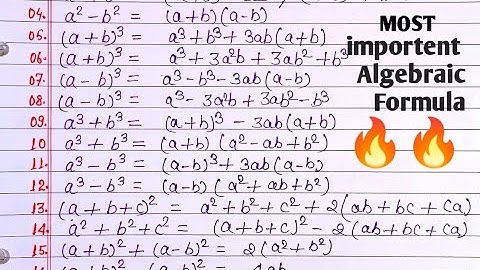 04. a² - b² = (a+b)(a-b)
05. (a+b)³ = a³+b³+3ab(a+b)
06. (a+b)³ = a³+3a²b+3ab²+b³
07. (a-b)³ = a³-b³-3ab(a-b)
08. (a-b)³ = a³-3a²b+3ab²-b³
09. a³+b³ = (a+b)³ - 3ab(a+b)
10. a³+b³ = (a+b) (a²-ab+b²)
11. a³-b³ = (a-b)³+3ab(a-b)
12. a³-b³ = (a-b) (a²+ab+b²)
13. (a+b+c)² = a²+b²+c²+2(ab+bc+ca)
14. a²+b²+c² = (a+b+c)²-2(ab+bc+ca)
15. (a+b)²+(a-b)² = 2(a²+b²)
MOST
importent
Algebraic
Formula
🔥🔥